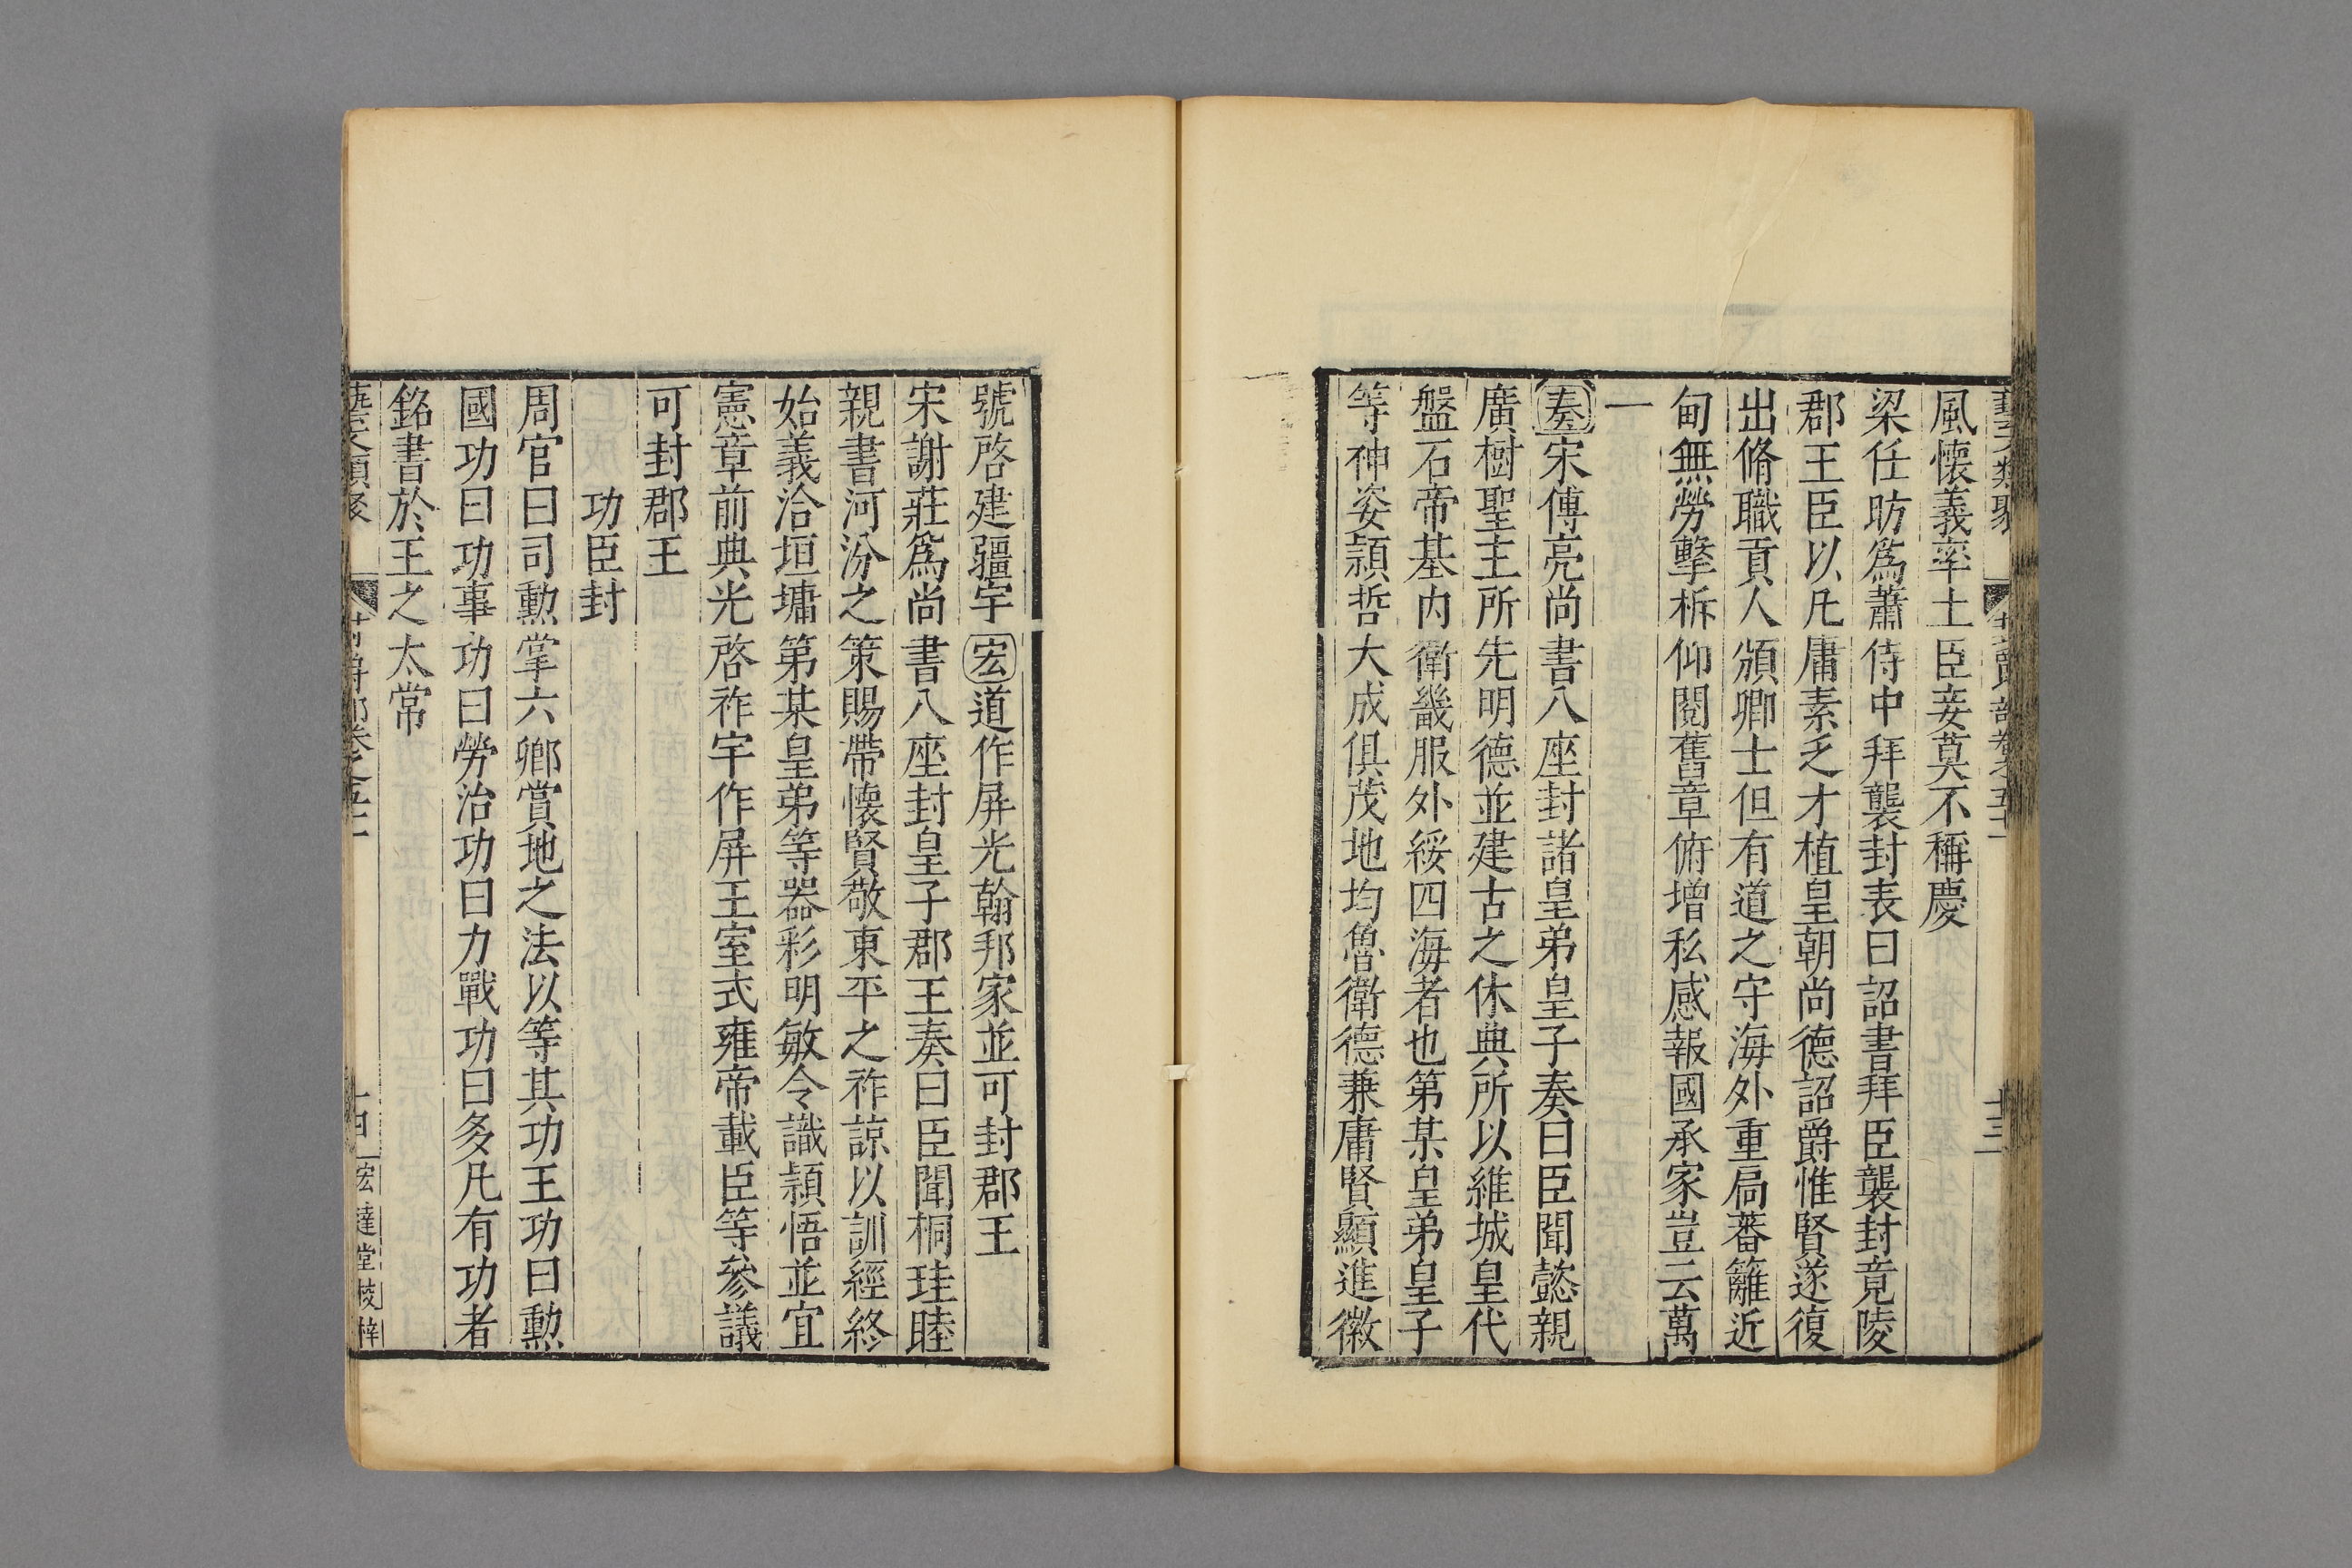 風懷義率土臣妾莫不稱慶
梁任昉爲蕭侍中拜襲封表曰詔書拜臣襲封竟陵
郡王臣以凡庸素乏才植皇朝尚德詔爵惟賢遂復
出脩職貢人頒卿士但有道之守海外重扃蕃籬近
甸無勞擊柝仰閱舊章俯增私感報國承家豈云萬
一
奏宋傅亮尚書八座封諸皇弟皇子奏曰臣聞懿親
廣樹聖主所先明德並建古之休典所以維城皇代
盤石帝基内衛畿服外綏四海者也第某皇弟皇子
等神姿頴哲大成俱茂地均魯衛德兼庸賢顯進徽
號啓建疆宇宏道作屏光翰邦家並可封郡王
宋謝莊爲尚書八座封皇子郡王奏曰臣聞桐珪睦
親書河汾之策賜帶懷賢敬東平之祚諒以訓經終
始義洽垣墉第某皇弟等器彩明敏令識頴悟並宜
憲章前典光啓祚宇作屏王室式雍帝載臣等參議
可封郡王
功臣封
周官曰司勳掌六鄉賞地之法以等其功王功曰勳
國功曰功事功曰勞治功曰力戰功曰多凡有功者
銘書於王之太常
宏達堂校梓